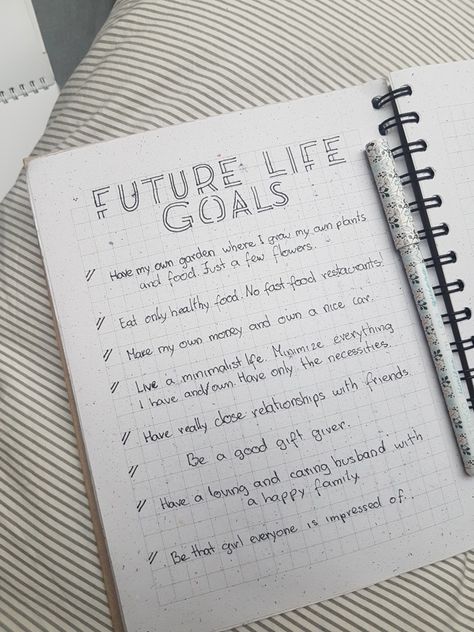 FUTURE LIFE
GOALS
// Have my own garden where I grow my own plants
and food. Just a few flowers.
// Eat only healthy food. No fast-food restaurants!
// Make my own money and own a nice car.
// Live a minimalist life. Minimize everything
I have and/own. Have only the necessities.
// Have really close relationships with friends.
// Be a good gift giver.
// Have a loving and caring husband with
a happy family.
// Be that girl everyone is impressed of..